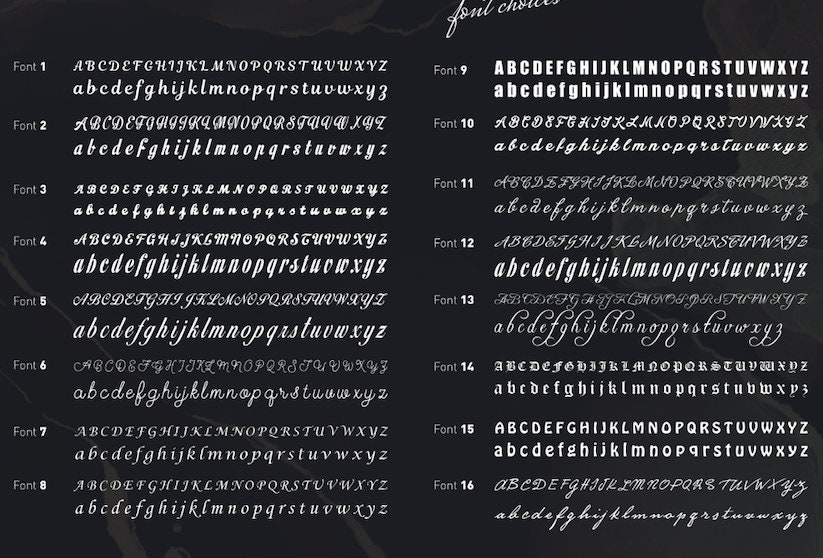 font choices
Font 1 ABCDEFGHIJKLMNOPQRSTUVWXYZ
abcdefghijklmnopqrstuvwxyz
Font 2 ABCDEFGHIJKLMNOPQRSTUVWXYZ
abcdefghijklmnopqrstuvwxyz
Font 3 ABCDEFGHIJKLMNOPQRSTUVWXYZ
abcdefghijklmnopqrstuvwxyz
Font 4 ABCDEFGHIJKLMNOPQRSTUVWXYZ
abcdefghijklmnopqrstuvwxyz
Font 5 ABCDEFGHIJKLMNOPQRSTUVWXYZ
abcdefghijklmnopqrstuvwxyz
Font 6 ABCDEFGHIJKLMNOPQRSTUVWXYZ
abcdefghijklmnopqrstuvwxyz
Font 7 ABCDEFGHIJKLMNOPQRSTUVWXYZ
abcdefghijklmnopqrstuvwxyz
Font 8 ABCDEFGHIJKLMNOPQRSTUVWXYZ
abcdefghijklmnopqrstuvwxyz
Font 9 ABCDEFGHIJKLMNOPQRSTUVWXYZ
abcdefghijklmnopqrstuvwxyz
Font 10 ABCDEFGHIJKLMNOPQRSTUVWXYZ
abcdefghijklmnopqrstuvwxyz
Font 11 ABCDEFGHIJKLMNOPQRSTUVWXYZ
abcdefghijklmnopqrstuvwxyz
Font 12 ABCDEFGHIJKLMNOPQRSTUVWXYZ
abcdefghijklmnopqrstuvwxyz
Font 13 ABCDEFGHIJKLMNOPQRSTUVWXYZ
abcdefghijklmnopqrstuvwxyz
Font 14 ABCDEFGHIJKLMNOPQRSTUVWXYZ
abcdefghijklmnopqrstuvwxyz
Font 15 ABCDEFGHIJKLMNOPQRSTUVWXYZ
abcdefghijklmnopqrstuvwxyz
Font 16 ABCDEFGHIJKLMNOPQRSTUVWXYZ
abcdefghijklmnopqrstuvwxyz